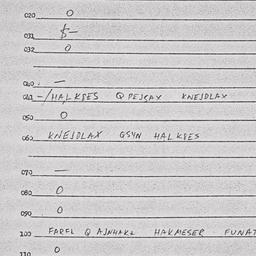 020 0
031 $-
032 0
040. —
041 -/HALKDES Q PEJQAX KNEJDLAX
050 0
060 KNEJDLAX GSYN HALKDES
070 —
080 0
090 0
100 FAREL Q AJNHAKL HAKMESER FUNAT
110 0